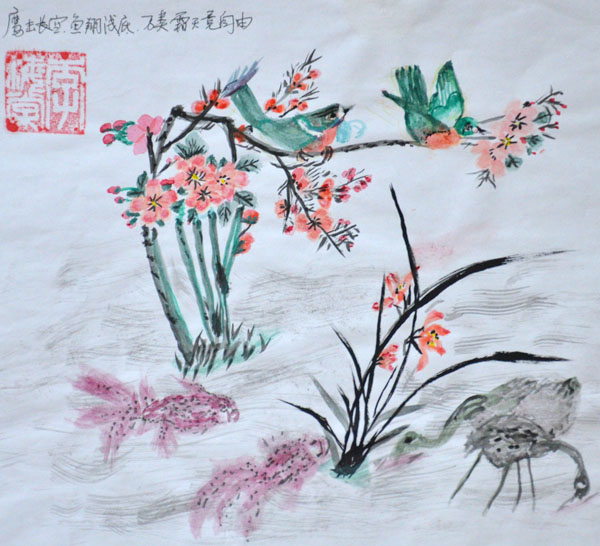 鹰击长空.鱼翔浅底.万类霜天竞自由